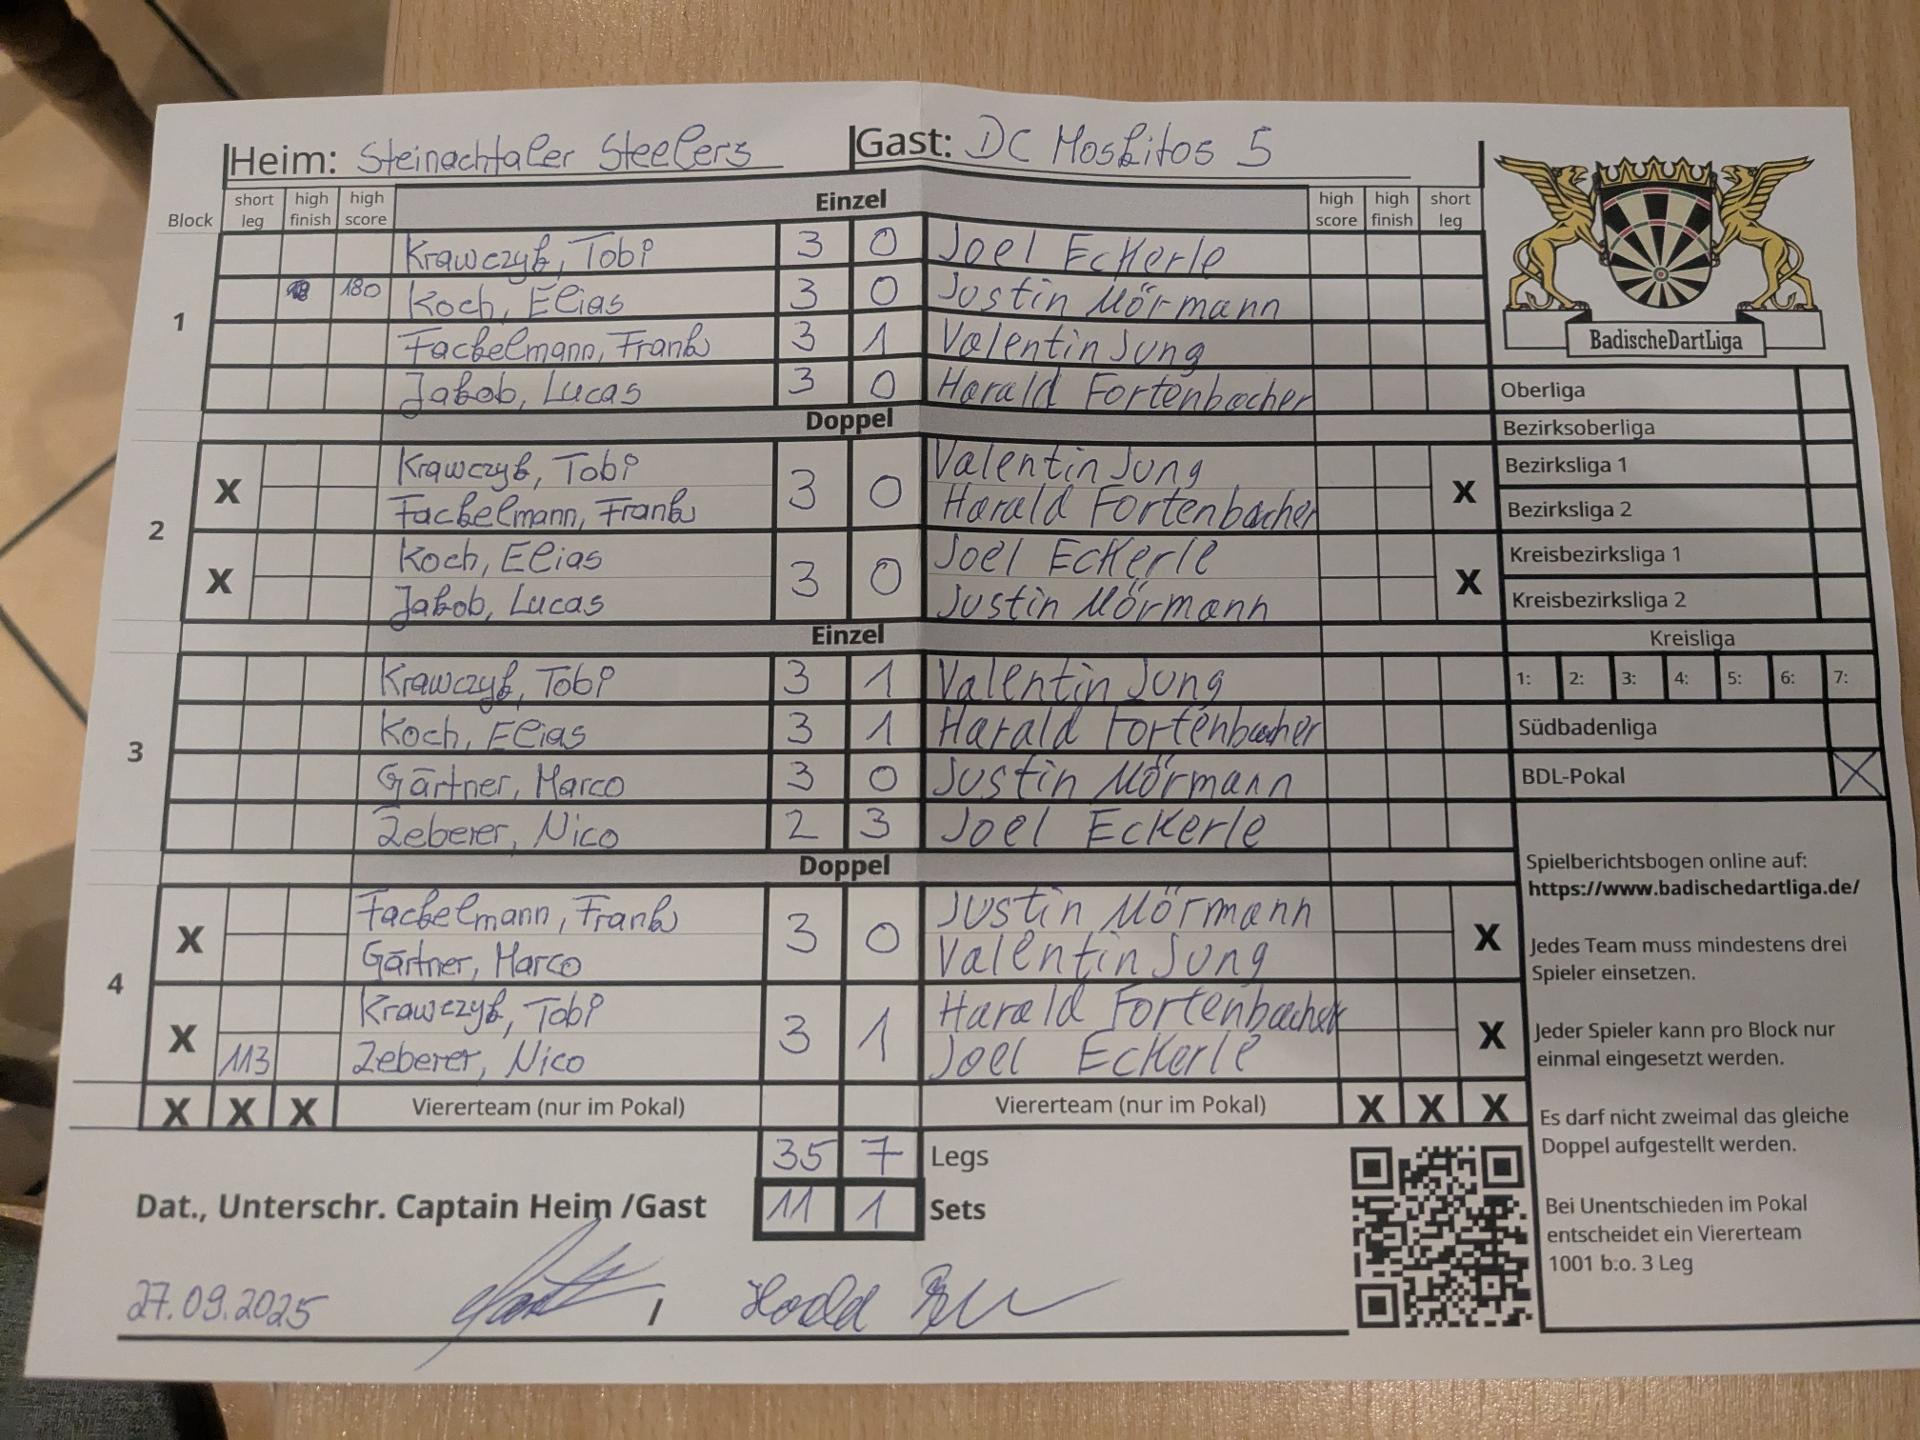 Heim: Steinachtaler Steelers Gast: DC Moskitos 5
Block short leg high finish high score Einzel high score high finish short leg
1
Krawczyk, Tobi 3 0 Joel Eckerle
180 Koch, Elias 3 0 Justin Mörmann
Fackelmann, Frank 3 1 Valentin Jung
Jakob, Lucas 3 0 Harald Fortenbacher
Doppel
2
X Krawczyk, Tobi 3 0 Valentin Jung X
Fackelmann, Frank Harald Fortenbacher
X Koch, Elias 3 0 Joel Eckerle X
Jakob, Lucas Justin Mörmann
Einzel
3
Krawczyk, Tobi 3 1 Valentin Jung
Koch, Elias 3 1 Harald Fortenbacher
Gärtner, Marco 3 0 Justin Mörmann
Zeberer, Nico 2 3 Joel Eckerle
Doppel
4
X Fackelmann, Frank 3 0 Justin Mörmann X
Gärtner, Marco Valentin Jung
X Krawczyk, Tobi 3 1 Harald Fortenbacher X
113 Zeberer, Nico Joel Eckerle
X X X Viererteam (nur im Pokal) Viererteam (nur im Pokal) X X X
35 7 Legs
Dat., Unterschr. Captain Heim /Gast 11 1 Sets
27.09.2025 /
BadischeDartLiga
Oberliga
Bezirksoberliga
Bezirksliga 1
Bezirksliga 2
Kreisbezirksliga 1
Kreisbezirksliga 2
Kreisliga
1: 2: 3: 4: 5: 6: 7:
Südbadenliga
BDL-Pokal X
Spielberichtsbogen online auf:
https://www.badischedartliga.de/
Jedes Team muss mindestens drei
Spieler einsetzen.
Jeder Spieler kann pro Block nur
einmal eingesetzt werden.
Es darf nicht zweimal das gleiche
Doppel aufgestellt werden.
Bei Unentschieden im Pokal
entscheidet ein Viererteam
1001 b:o. 3 Leg